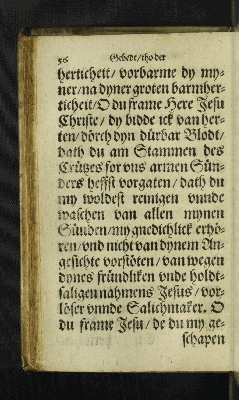 56 Gebedt / tho der
herticheit / vorbarme dy my-
ner / na dyner groten barmher-
ticheit / O du frame Here Jesu
Christe / dy bidde ick van her-
ten / dörch dyn dürbar Blodt /
dath du am Stammen des
Crützes for vns armen Sün-
ders heffst vorgaten / dath du
my woldest reinigen vnnde
waschen van allen mynen
Sünden / my gnedichlick erhö-
ren / vnd nicht van dynem An-
gesichte vorstöten / van wegen
dynes fründtliken vnde holdt-
saligen nahmens Jesus / vor-
löser vnnde Salichmaker. O
du frame Jesu / de du my ge-
schapen